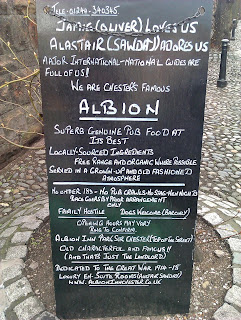 TELE-01244-340345
JAMIE (OLIVER) LOVES US
ALASTAIR (SAWDAY) ADORES US
MAJOR INTERNATIONAL-NATIONAL GUIDES ARE
FULL OF US!
WE ARE CHESTER'S FAMOUS
ALBION
SUPERB GENUINE PUB FOOD AT
ITS BEST
LOCALLY-SOURCED INGREDIENTS
FREE RANGE AND ORGANIC WHERE POSSIBLE
SERVED IN A GROWN-UP AND OLD FASHIONED
ATMOSPHERE
NO UNDER 18S - NO PUB CRAWLS-NO STAG-HEN NIGHTS
RACE GOERS BY PRIOR ARRANGEMENT
ONLY
FAMILY HOSTILE DOGS WELCOME
OPENING HOURS MAY VARY
RING TO CONFIRM.
ALBION INN PARK STR CHESTER (TOP OF THE STREET)
OLD CHARACTERFUL AND FAMOUS!!
(AND THATS JUST THE LANDLORD)
DEDICATED TO THE GREAT WAR 1914-18
LUXURY EN-SUITE ROOMS (ANOTHER SAWDAY)
WWW.ALBIONINNCHESTER.CO.UK